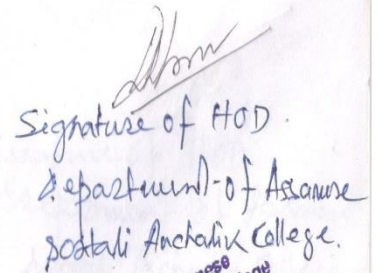 Signature of HOD.
Department of Assamese
Anchalik College.